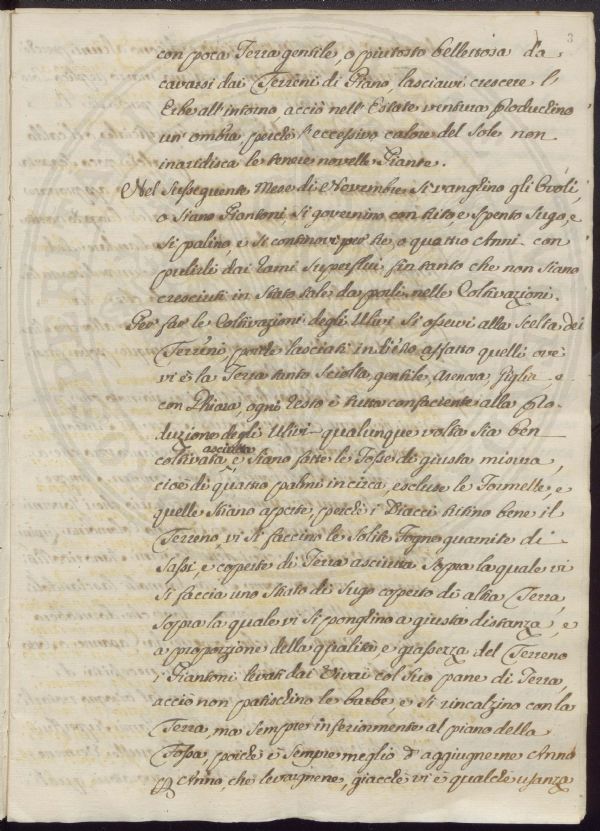 3
con poca Terra gentile, o piutosto bellettosa da
cavarsi dai Terreni di Piano, lasciavi crescere l'
Erbe all'intorno acciò nell'Estate ventura produchino
un'ombra, perchè l'eccessivo calore del Sole non
inaridisca le tenere novelle Piante.
Nel Susseguente Mese di Novembre si vanghino gli Ovoli,
o siano Piantoni, si governino con trito, e spento Sugo, e
si palino e si continovi per tre, o quattro Anni con
pulirli dai rami superflui, fin tanto che non siano
cresciuti in stato tale da porli nelle Coltivazioni.
Per far le Coltivazioni degli Ulivi si osservi alla scelta dei
Terreni, perchè lasciati in affatto quelli ove
vi è la Terra tanto sciolta, gentile, arenosa e
con Ghiara ogni resto è tutto confaciente alla pro-
duzione degli Ulivi qualunque volta sia ben
coltivata asciutta e siano fatte le Fosse di giusta misura,
cioè di quattro palmi incirca, escluse le Formelle, e
quelle stiano aperte, perchè i Diacci tritino bene il
Terreno, vi si faccino le solite Fogne guarnite di
Sassi, e coperte di Terra asciutta sopra la quale vi
si faccia uno strato di Sugo coperto di altra Terra,
sopra la quale vi si ponghino a giusta distanza, e
a proporzione della qualità e grassezza del Terreno
i Piantoni levati dai Vivai col suo pane di Terra,
acciò non patischino le barbe, e si rincalzino con la
Terra, ma sempre inferiormente al piano della
Fossa, perchè è sempre meglio d'aggiugnerne Anno
per Anno, che levargnene, giacchè vi è qualche usanza